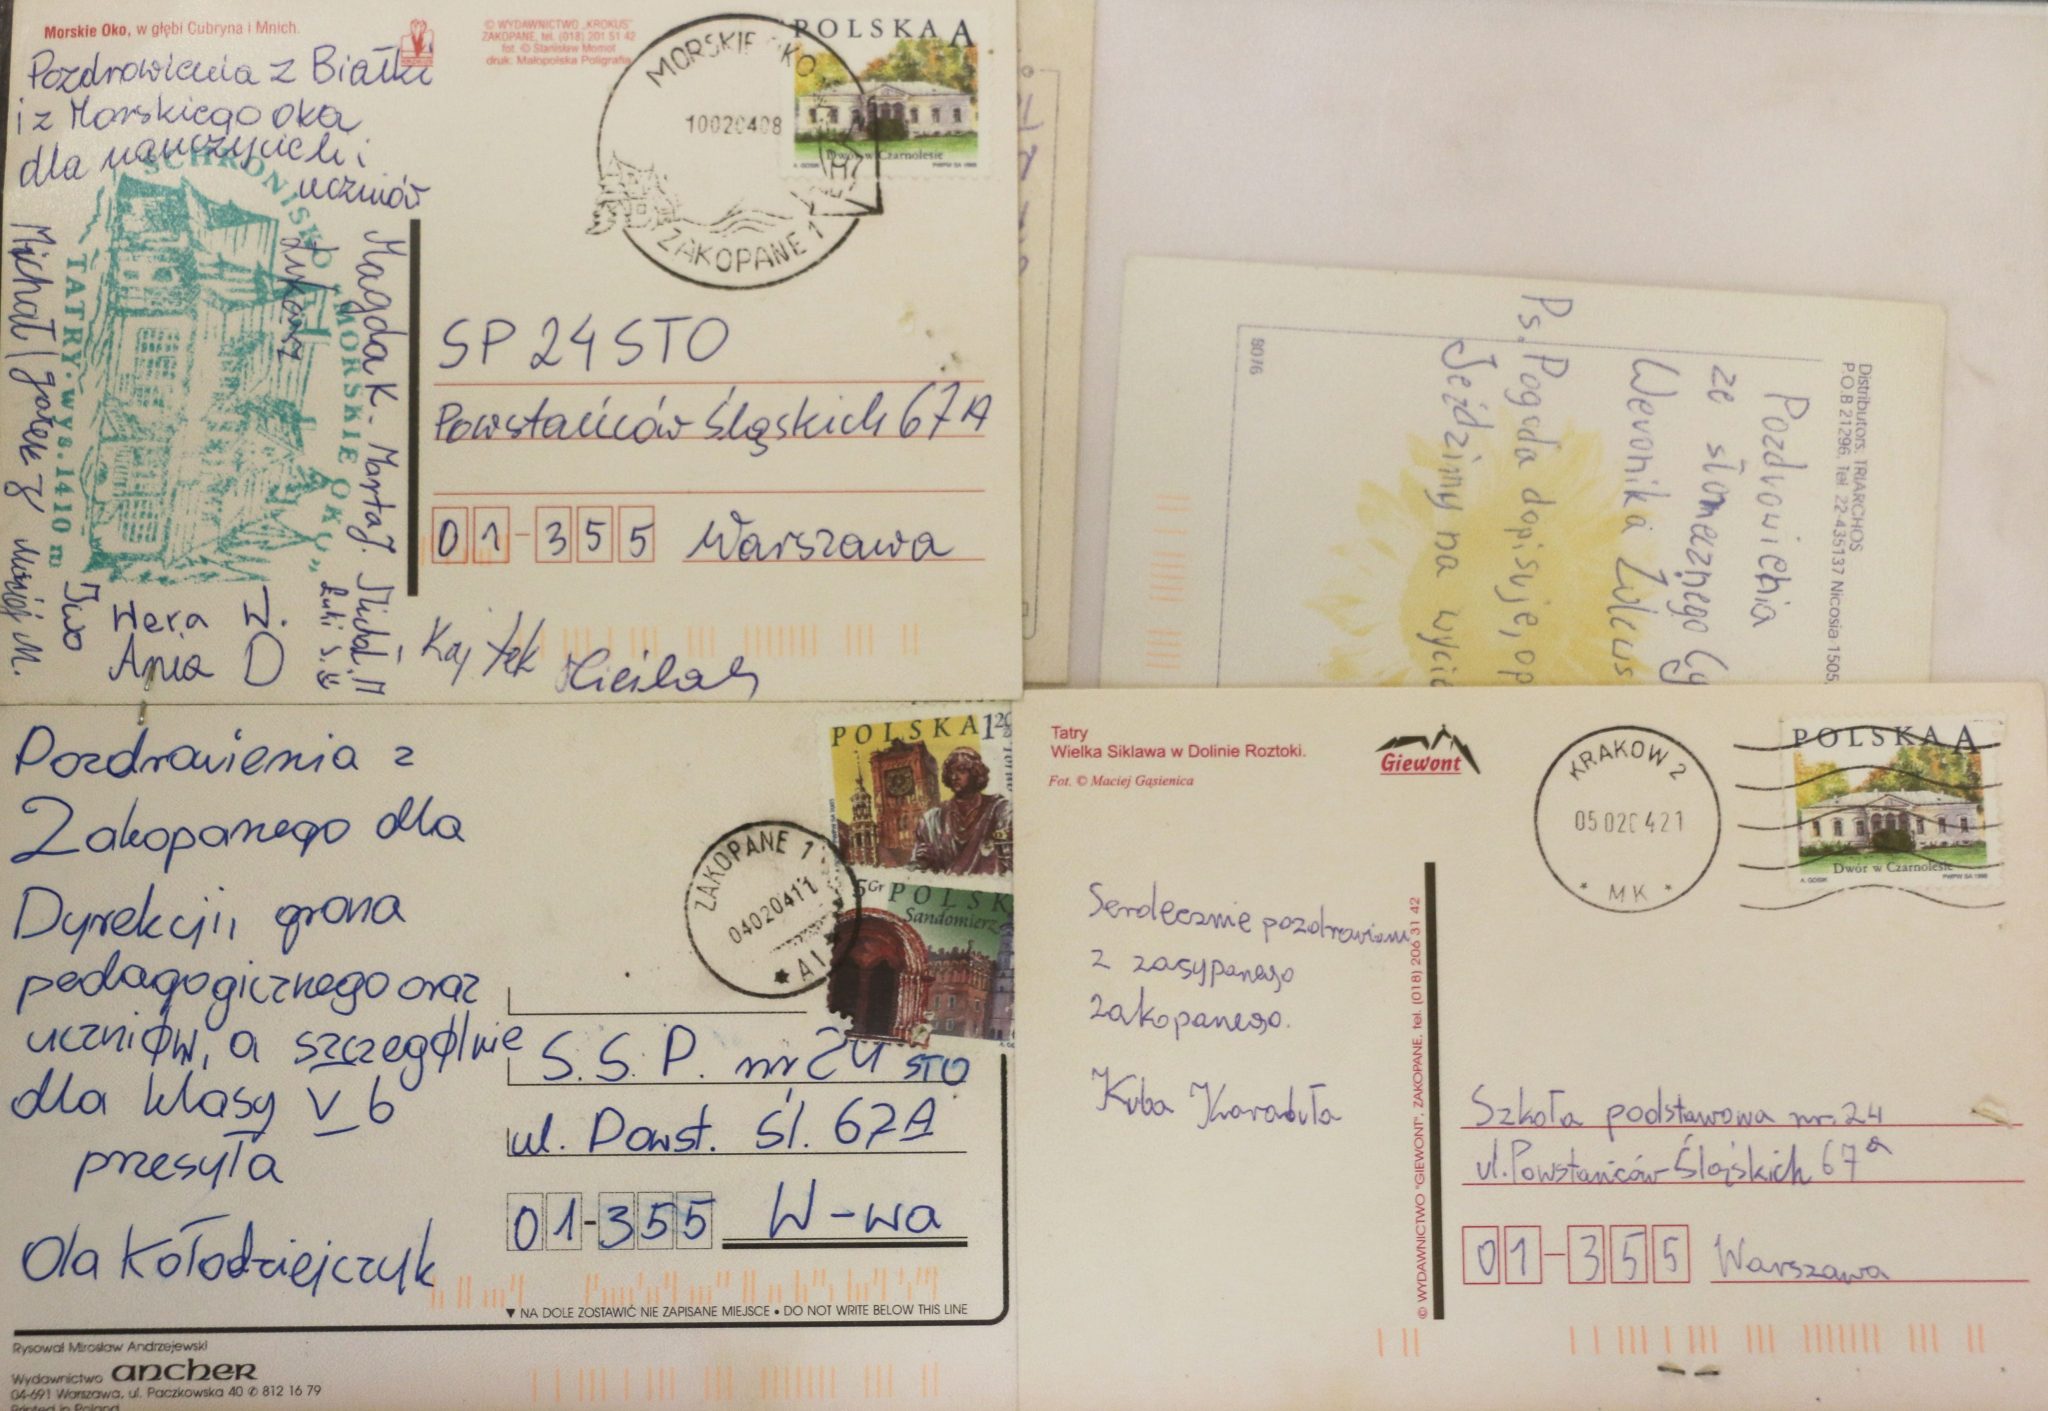 Morskie Oko, w głębi Cubryna i Mnich.
© WYDAWNICTWO „KROKUS"
ZAKOPANE, tel. (018) 201 51 42
fot. © Stanisław Momot
druk. Małopolska Poligrafia
Pozdrowienia z Białki
i z Morskiego oka
dla nauczycieli i
uczniów
SCHRONISKO „MORSKIE OKO„
TATRY·wys. 1410 m
Magda K. Marta J. Michał.M
Łukasz
Łuki S.
Michał
Maciej M.
Iwo
Wera W.
Ania D
Kajtek
POLSKA A
Dwór w Czarnolesie
MORSKIE OKO
10020408
ZAKOPANE 1
SP 24 STO
Powstańców Śląskich 67A
01-355 Warszawa
80/6
Distributors: TRIARCHOS
P.O.B 21296, Tel. 22-435137 Nicosia 1505,
Pozdrowienia
ze słonecznego Cy
Weronika
Ps. Pogoda dopisuje, op
Jeździmy na wyci
Pozdrowienia z
Zakopanego dla
Dyrekcji, grona
pedagogicznego oraz
uczniów, a szczególnie
dla klasy V b
przesyła
Ola Kołodziejczyk
POLSKA 1 20
5 Gr POLSK
Sandomierz
ZAKOPANE 1
04020411
* A1
S.S.P. nr 24 STO
ul. Powst. Śl. 67A
01-355 W-wa
▼ NA DOLE ZOSTAWIĆ NIE ZAPISANE MIEJSCE • DO NOT WRITE BELOW THIS LINE
Rysował Mirosław Andrzejewski
Wydawnictwo ancher
04-691 Warszawa, ul. Paczkowska 40 ✆ 812 16 79
Printed in Poland
Tatry
Wielka Siklawa w Dolinie Roztoki.
Fot. © Maciej Gąsienica
Giewont
KRAKOW 2
05020421
* MK *
POLSKA A
Dwór w Czarnolesie
Serdecznie pozdrowieni
z zasypanego
zakopanego.
Kuba Karabuła
© WYDAWNICTWO "GIEWONT", ZAKOPANE, tel. (018) 206 31 42
Szkoła podstawowa nr. 24
ul. Powstańców Śląskich 67a
01-355 Warszawa